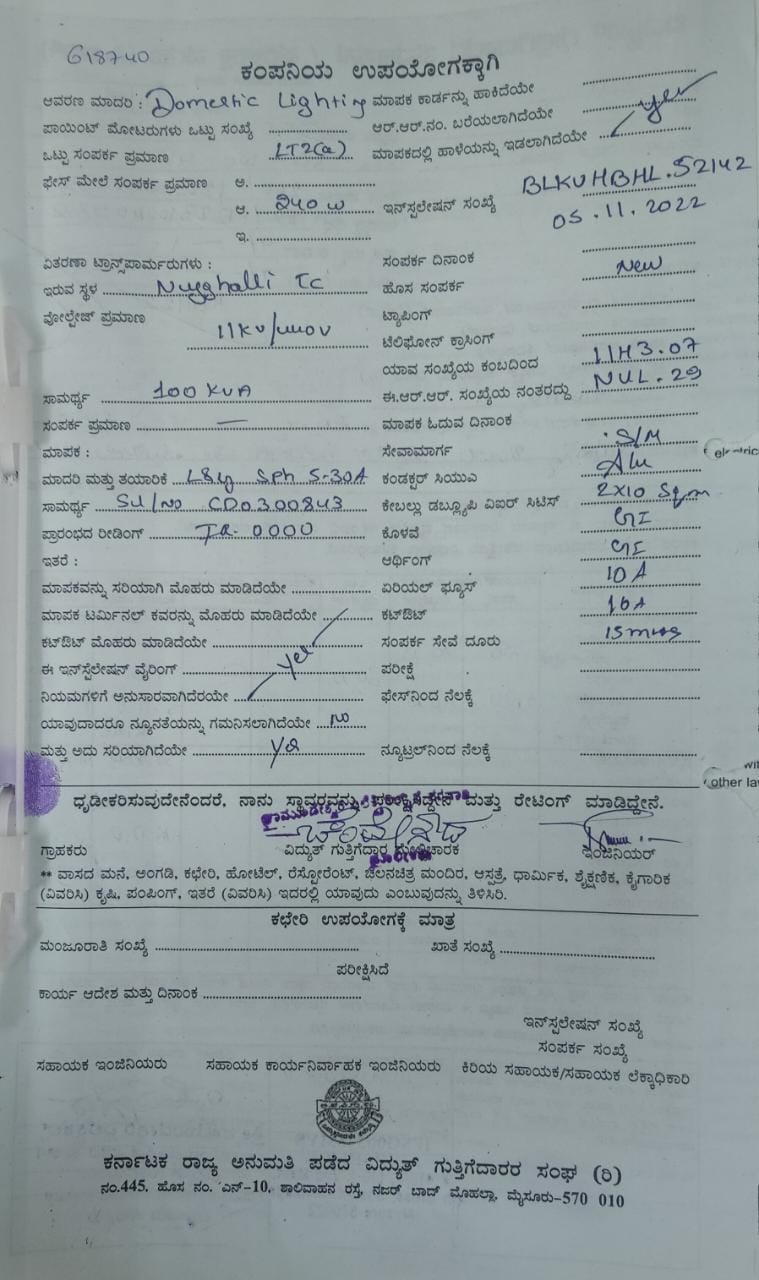 618740
ಕಂಪನಿಯ ಉಪಯೋಗಕ್ಕಾಗಿ
ಆವರಣ ಮಾದರಿ : Domestic Lighting ಮಾಪಕ ಕಾರ್ಡನ್ನು ಹಾಕಿದೆಯೇ
ಪಾಯಿಂಟ್ ಮೋಟರುಗಳು ಒಟ್ಟು ಸಂಖ್ಯೆ ಆರ್.ಆರ್.ನಂ. ಬರೆಯಲಾಗಿದೆಯೇ yes
ಒಟ್ಟು ಸಂಪರ್ಕ ಪ್ರಮಾಣ LT2(a) ಮಾಪಕದಲ್ಲಿ ಹಾಳೆಯನ್ನು ಇಡಲಾಗಿದೆಯೇ
ಫೇಸ್ ಮೇಲೆ ಸಂಪರ್ಕ ಪ್ರಮಾಣ ಅ. BLKVHBHL.52142
ಆ. 240 W ಇನ್‌ಸ್ಟಲೇಷನ್ ಸಂಖ್ಯೆ 05.11.2022
ಇ.
ವಿತರಣಾ ಟ್ರಾನ್ಸ್‌ಪಾರ್ಮರುಗಳು : ಸಂಪರ್ಕ ದಿನಾಂಕ
ಇರುವ ಸ್ಥಳ Nugghalli TC ಹೊಸ ಸಂಪರ್ಕ New
ವೋಲ್ಟೇಜ್ ಪ್ರಮಾಣ 11KV/440V ಟ್ಯಾಪಿಂಗ್
ಟೆಲಿಫೋನ್ ಕ್ರಾಸಿಂಗ್
ಯಾವ ಸಂಖ್ಯೆಯ ಕಂಬದಿಂದ LIH3.07
ಸಾಮರ್ಥ್ಯ 100 KVA ಈ.ಆರ್.ಆರ್. ಸಂಖ್ಯೆಯ ನಂತರದ್ದು NUL.29
ಸಂಪರ್ಕ ಪ್ರಮಾಣ — ಮಾಪಕ ಓದುವ ದಿನಾಂಕ
ಮಾಪಕ : ಸೇವಾಮಾರ್ಗ S/M
electric
ಮಾದರಿ ಮತ್ತು ತಯಾರಿಕೆ L&g SPh 5-30A ಕಂಡಕ್ಟರ್ ಸಿಯುಎ Alu
ಸಾಮರ್ಥ್ಯ Sl/No CD0300843 ಕೇಬಲ್ಲು ಡಬ್ಲ್ಯೂಪಿ ವಿಐರ್ ಸಿಟಿಸ್ 2X10 Sqm
ಪ್ರಾರಂಭದ ರೀಡಿಂಗ್ IR. 0000 ಕೊಳವೆ GI
ಇತರೆ : ಆರ್ಥಿಂಗ್ GI
ಮಾಪಕವನ್ನು ಸರಿಯಾಗಿ ಮೊಹರು ಮಾಡಿದೆಯೇ ಏರಿಯಲ್ ಫ್ಯೂಸ್ 10 A
ಮಾಪಕ ಟರ್ಮಿನಲ್ ಕವರನ್ನು ಮೊಹರು ಮಾಡಿದೆಯೇ ಕಟ್‌ಔಟ್ 16A
ಕಟ್‌ಔಟ್ ಮೊಹರು ಮಾಡಿದೆಯೇ ಸಂಪರ್ಕ ಸೇವೆ ದೂರು 15 mtrs
ಈ ಇನ್‌ಸ್ಟೆಲೇಷನ್ ವೈರಿಂಗ್ yes ಪರೀಕ್ಷೆ
ನಿಯಮಗಳಿಗೆ ಅನುಸಾರವಾಗಿದೆರಯೇ ಫೇಸ್‌ನಿಂದ ನೆಲಕ್ಕೆ
ಯಾವುದಾದರೂ ನ್ಯೂನತೆಯನ್ನು ಗಮನಿಸಲಾಗಿದೆಯೇ no
ಮತ್ತು ಅದು ಸರಿಯಾಗಿದೆಯೇ yes ನ್ಯೂಟ್ರಲ್‌ನಿಂದ ನೆಲಕ್ಕೆ
wit
other law
ಧೃಡೀಕರಿಸುವುದೇನೆಂದರೆ, ನಾನು ಸ್ಥಾವರವನ್ನು ಪರೀಕ್ಷಿಸಿದ್ದೇನೆ ಮತ್ತು ರೇಟಿಂಗ್ ಮಾಡಿದ್ದೇನೆ.
ಗ್ರಾಹಕರು ವಿದ್ಯುತ್ ಗುತ್ತಿಗೆದಾರ ಮೇಲ್ವಿಚಾರಕ ಇಂಜಿನಿಯರ್
** ವಾಸದ ಮನೆ, ಅಂಗಡಿ, ಕಛೇರಿ, ಹೋಟೆಲ್, ರೆಸ್ಟೋರೆಂಟ್, ಚಲನಚಿತ್ರ ಮಂದಿರ, ಆಸ್ಪತ್ರೆ, ಧಾರ್ಮಿಕ, ಶೈಕ್ಷಣಿಕ, ಕೈಗಾರಿಕ
(ವಿವರಿಸಿ) ಕೃಷಿ, ಪಂಪಿಂಗ್, ಇತರೆ (ವಿವರಿಸಿ) ಇದರಲ್ಲಿ ಯಾವುದು ಎಂಬುವುದನ್ನು ತಿಳಿಸಿರಿ.
ಕಛೇರಿ ಉಪಯೋಗಕ್ಕೆ ಮಾತ್ರ
ಮಂಜೂರಾತಿ ಸಂಖ್ಯೆ ಖಾತೆ ಸಂಖ್ಯೆ
ಪರೀಕ್ಷಿಸಿದೆ
ಕಾರ್ಯ ಆದೇಶ ಮತ್ತು ದಿನಾಂಕ
ಇನ್‌ಸ್ಟಲೇಷನ್ ಸಂಖ್ಯೆ
ಸಂಪರ್ಕ ಸಂಖ್ಯೆ
ಸಹಾಯಕ ಇಂಜಿನಿಯರು ಸಹಾಯಕ ಕಾರ್ಯನಿರ್ವಾಹಕ ಇಂಜಿನಿಯರು ಕಿರಿಯ ಸಹಾಯಕ/ಸಹಾಯಕ ಲೆಕ್ಕಾಧಿಕಾರಿ
ಕರ್ನಾಟಕ ರಾಜ್ಯ ಅನುಮತಿ ಪಡೆದ ವಿದ್ಯುತ್ ಗುತ್ತಿಗೆದಾರರ ಸಂಘ (ರಿ)
ನಂ.445, ಹೊಸ ನಂ. ಎನ್-10, ಶಾಲಿವಾಹನ ರಸ್ತೆ, ನಜರ್ ಬಾದ್ ಮೊಹಲ್ಲಾ, ಮೈಸೂರು-570 010